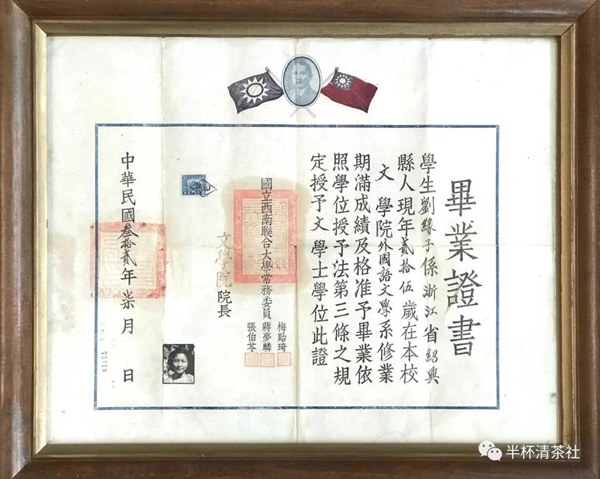 畢業證書
學生劉緣子係浙江省紹興
縣人現年貳拾伍歲在本校
文學院外國語文學系修業
期滿成績及格准予畢業依
照學位授予法第三條之規
定授予文學士學位此證
國立西南聯合大學常務委員
梅貽琦
蔣夢麟
張伯苓
文學院院長
中華民國叁拾貳年柒月 日
半杯清茶社